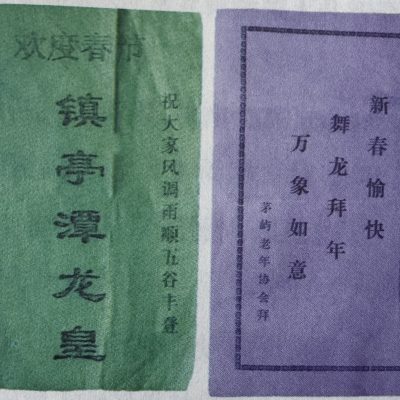 欢度春节
祝大家风调雨顺五谷丰登
镇亭潭龙皇
新春愉快
舞龙拜年
万象如意
茅屿老年协会拜